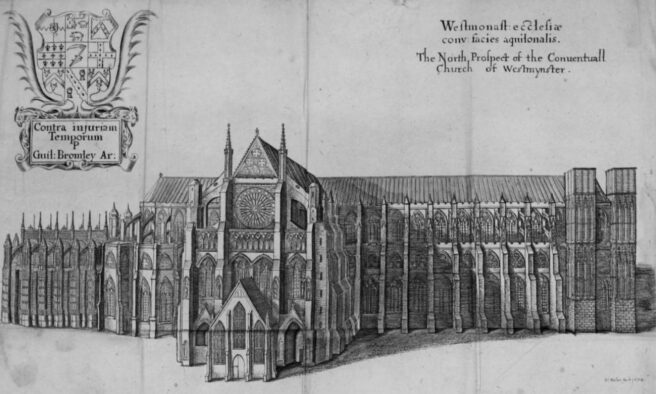 Contra injuriam
Temporum
P
Guil: Bromley Ar:
Westmonast: ecclesiæ
conv: facies aquilonalis.
The North, Prospect of the Conventuall
Church of Westmynster.